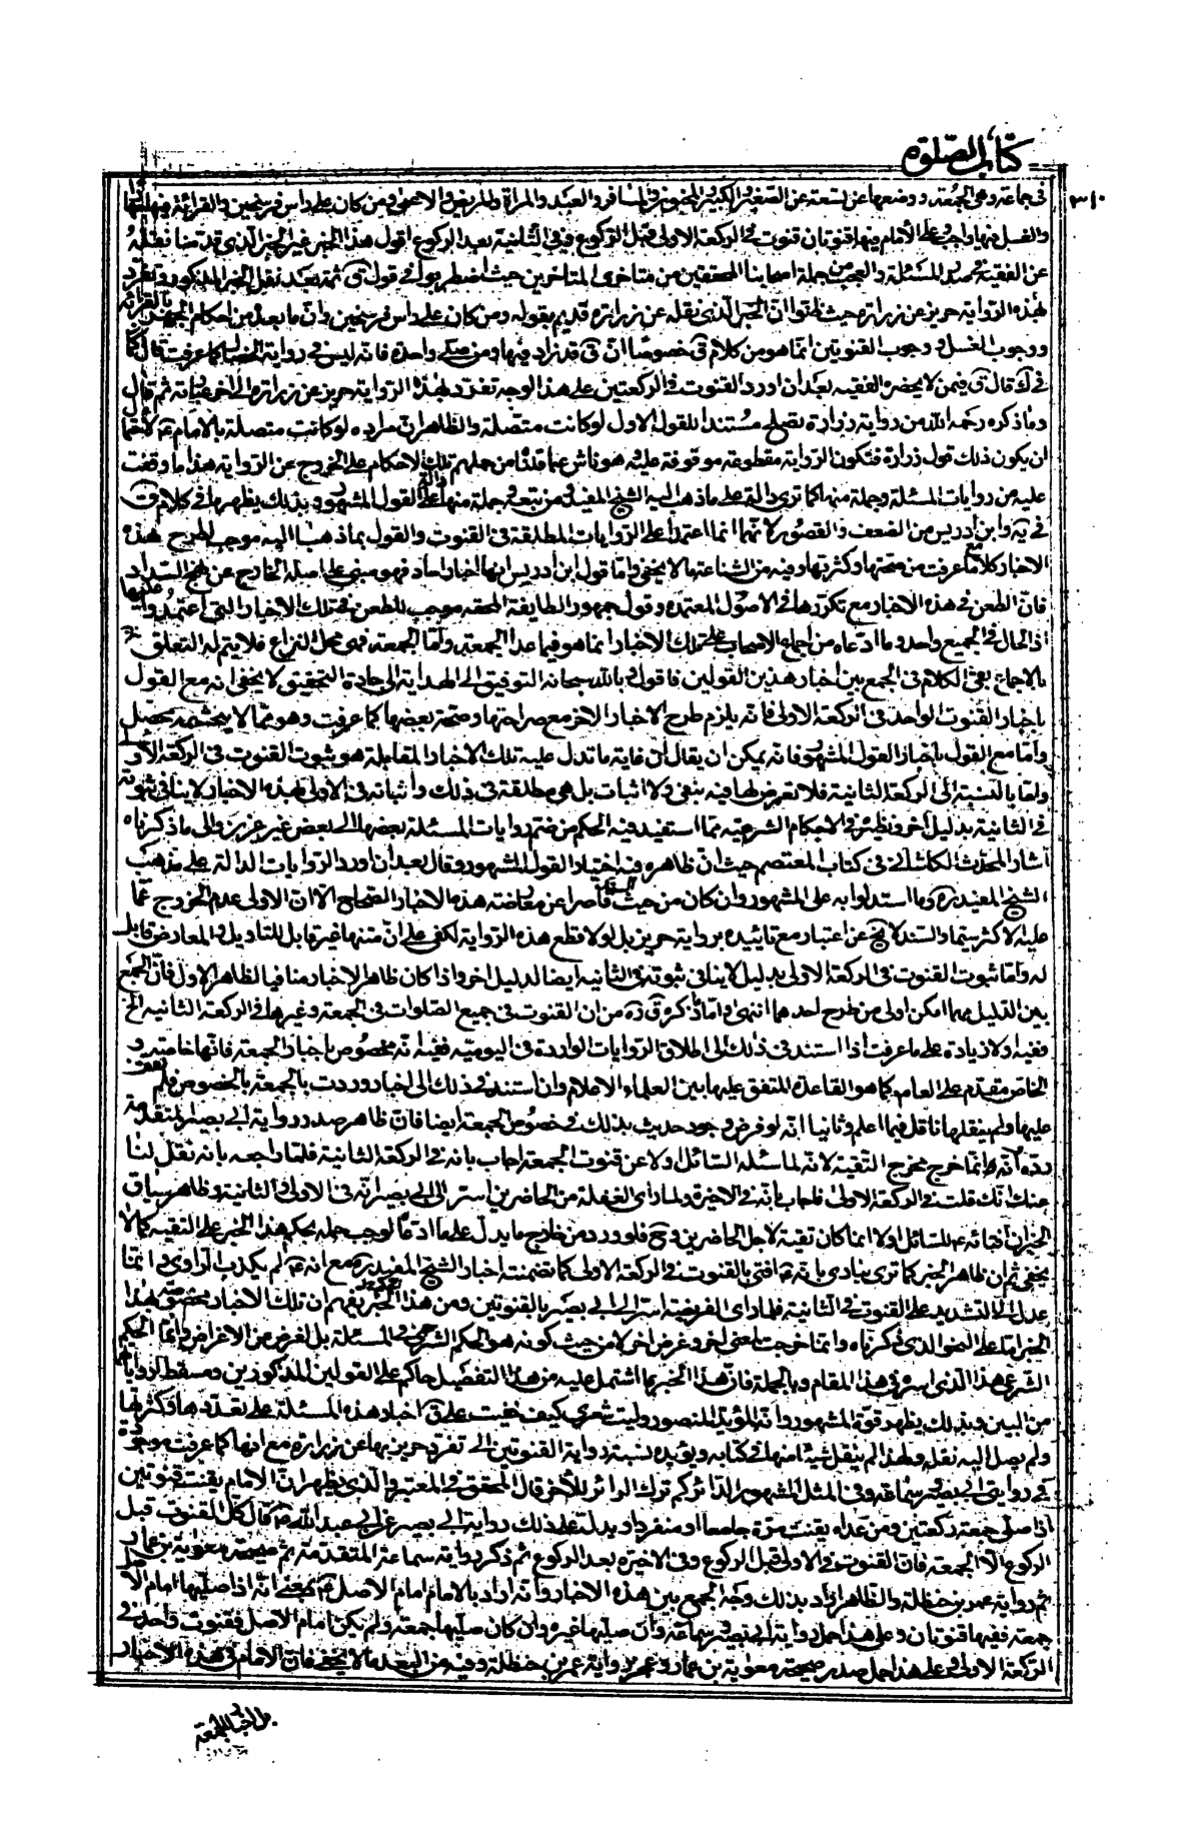 كتاب الصلوة
٣١٠
في جماعة وهي الجمعة ووضعها عن تسعة عن الصغير والكبير والمجنون والمسافر والعبد والمرأة والمريض والاعمى ومن كان على راس فرسخين والقرائة فيها
والغسل فيها واجب وعلى الأمام فيها قنوتان قنوت في الركعة الاولى قبل الركوع وفي الثانية بعد الركوع اقول هذا الخبر غير الخبر الذي قدمنا نقله
عن الفقيه في صدر المسئلة والعجب من جملة اصحابنا المحققين من متاخري المتاخرين حيث اضطربوا في قول ق ثمة بعد نقل الخبر المذكور وتفرد
بهذه الرواية حريز عن زرارة حيث ظنوا ان الخبر الذي نقله عن زرارة قد تم بقوله ومن كان على راس فرسخين وان ما بعده من احكام الجهر بالقرائة
ووجوب الغسل ووجوب القنوتين انما هو من كلام ق خصوصا ان ق قد زاد فيها ومن صلى واحدة فانه ليس في رواية الخصال كما عرفت قال
في ك قال ق فيمن لا يحضره الفقيه بعد ان اورد القنوت في الركعتين على هذا الوجه تفرد بهذه الرواية حريز عن زرارة الى اخر عبارته ثم قال
وما ذكره رحمه الله من رواية زرارة يصلح مستندا للقول الاول لو كانت متصلة والظاهر ان مراده لو كانت متصلة بالامام ع لاحتمال
ان يكون ذلك قول زرارة فتكون الرواية مقطوعة موقوفة عليه هو ناش عما قلنا من حملهم تلك الاحكام على الخروج عن الرواية هذا ما وقفت
عليه من روايات المسئلة وجملة منها كما ترى دالة على ما ذهب اليه الشيخ المفيد ومن تبعه وجملة منها دالة على القول المشهور وبذلك يظهر ما في كلام ق
في يه وابن ادريس من الضعف والقصور لانهما انما اعتمدا على الروايات المطلقة في القنوت والقول بما ذهبا اليه موجب لطرح هذه
الاخبار كلا مع ما عرفت من صحتها وكثرتها وفيه من الشناعة ما لا يخفى واما قول ابن ادريس انها اخبار احاد فهو مبني على اصله الخارج عن نهج السداد
فان الطعن في هذه الاخبار مع تكررها في الاصول المعتمدة وقول جمهور الطايفة المحقة موجب للطعن في تلك الاخبار التي اعتمدوا عليها
اذ الحال في الجميع واحد وما ادعاه من اجماع الاصحاب على تلك الاخبار انما هو فيما عدا الجمعة واما الجمعة فهي محل النزاع فلا يتم له التعلق
بالاجماع بقي الكلام في الجمع بين اخبار هذين القولين فاقول وبالله سبحانه التوفيق الى الهداية الى جادة التحقيق لا يخفى انه مع القول
باخبار القنوت الواحد في الركعة الاولى فانه يلزم طرح الاخبار الاخر مع صراحتها وصحة بعضها كما عرفت وهو مما لا يتجشمه محصل
واما مع القول باخبار القول المشهور فانه يمكن ان يقال ان غاية ما تدل عليه تلك الاخبار المقابلة هو ثبوت القنوت في الركعة الاولى
واما بالنسبة الى الركعة الثانية فلا تعرض لها فيه بنفي ولا اثبات بل هي مطلقة في ذلك واثباته في الاولى بهذه الاخبار لا ينافي ثبوته
في الثانية بدليل اخر ونظيره في الاحكام الشرعية مما استفيد فيه الحكم من ضم روايات المسئلة بعضها الى بعض غير عزيز والى ما ذكرناه
اشار المحدث الكاشاني في كتاب المعتصم حيث ان ظاهره فيه اختيار القول المشهور وقال بعد ان اورد الروايات الدالة على مذهب
الشيخ المفيد ره وما استدلوا به على المشهور وان كان من حيث السند قاصرا عن معارضة هذه الاخبار الصحاح الا ان الاولى عدم الخروج عما
عليه الاكثر سيما والسند لا يخ عن اعتبار مع تاييده برواية حريز بل لولا قطع هذه الرواية لكفى على ان متنها غير قابل للتاويل والمعارض قابل
له واما ثبوت القنوت في الركعة الاولى بدليل لا ينافي ثبوته في الثانية ايضا لدليل اخر واذا كان ظاهر الاخبار منافيا لظاهر الاول فان الجمع
بين الدليل مهما امكن اولى من طرح احدهما انتهى واما ما ذكره ق ره من ان القنوت في جميع الصلوات في الجمعة وغيرها في الركعة الثانية الخ
ففيه اولا زيادة على ما عرفت اذا استند في ذلك الى اطلاق الروايات الواردة في اليومية ففيه انه مخصوص باخبار الجمعة فانها خاصة و
الخاص مقدم على العام كما هو القاعدة المتفق عليها بين العلماء الاعلام وان استند في ذلك الى اخبار وردت بالجمعة بالخصوص فلم نقف
عليها ولم ينقلها ناقل فيما اعلم وثانيا انه لو فرض وجود حديث بذلك في خصوص الجمعة ايضا فان ظاهر صدر رواية ابي بصير المتقدمة
انه انما خرج مخرج التقية لانه لما سئله السائل اولا عن قنوت الجمعة اجاب بانه في الركعة الثانية فلما راجعه بانه نقل لنا
عنك انك قلت في الركعة الاولى فاجاب بانه في الاخيرة ولما راى الغفلة من الحاضرين اسر الى ابي بصير انه في الاولى والثانية وظاهر سياق
الخبر ان اجابته ع للسائل اولا انما كان تقية لاجل الحاضرين وح فلو ورد من خارج ما يدل على ما ادعاه لوجب حمله بحكم هذا الخبر على التقية كما لا
يخفى ثم ان ظاهر الخبر كما ترى ينادي بانه ع افتى بالقنوت في الركعة الاولى كما تضمنته اخبار الشيخ المفيد ره مع انه ع لم يكذب الراوي وانما
عدل الى التشديد على القنوت في الثانية فلما راى الفرصة اسر الى ابي بصير بالقنوتين ومن هذا الخبر يفهم ان تلك الاخبار مخصوصة بهذا
الخبر اما على النحو الذي ذكرناه وانما خرجت لمعنى اخر وغرض اخر لا من حيث كونه هو الحكم الشرعي في المسئلة بل لغرض من الاغراض وانما الحكم
الشرعي هذا الذي اسره في هذا المقام وبالجملة فان هذا الخبر بما اشتمل عليه من هذا التفصيل حاكم على القولين المذكورين ومسقط لرواياتهما
من البين وبذلك يظهر قوة المشهور وانه المؤيد المنصور وليت شعري كيف خفيت على ق اخبار هذه المسئلة على تعددها وكثرتها
ولم يصل اليه نقله ولهذا لم ينقل شيئا منها في كتابه ويؤيده نسبة رواية القنوتين الى تفرد حريز بها عن زرارة مع انها كما عرفت موجودة
في روايتي ابي بصير وسماعة وفي المثل المشهور السائر كم ترك الاول للاخر قال المحقق في المعتبر والذي يظهر ان الامام يقنت قنوتين
اذا صلى جمعة ركعتين ومن عداه يقنت مرة جامعا او منفردا ويدل على ذلك رواية ابي بصير عن ابي عبد الله ع قال كل القنوت قبل
الركوع الا الجمعة فان القنوت في الاولى قبل الركوع وفي الاخيرة بعد الركوع ثم ذكر رواية سماعة المتقدمة ثم صحيحة معوية بن عمار
ثم رواية عمر بن حنظلة والظاهر انه اراد بذلك وجه الجمع بين هذه الاخبار وانه اراد بالامام امام الاصل ع بمعنى انه اذا صليها امام الاصل
جمعة ففيها قنوتان وعلى هذا حمل رواية ابي بصير وسماعة وان صليها غيره وان كان صليها جمعة ولم يكن امام الاصل فقنوت واحد في
الركعة الاولى وعلى هذا حمل صدر صحيحة معوية بن عمار وعجز رواية عمر بن حنظلة وفيه من البعد ما لا يخفى فان الامام في هذه الاخبار